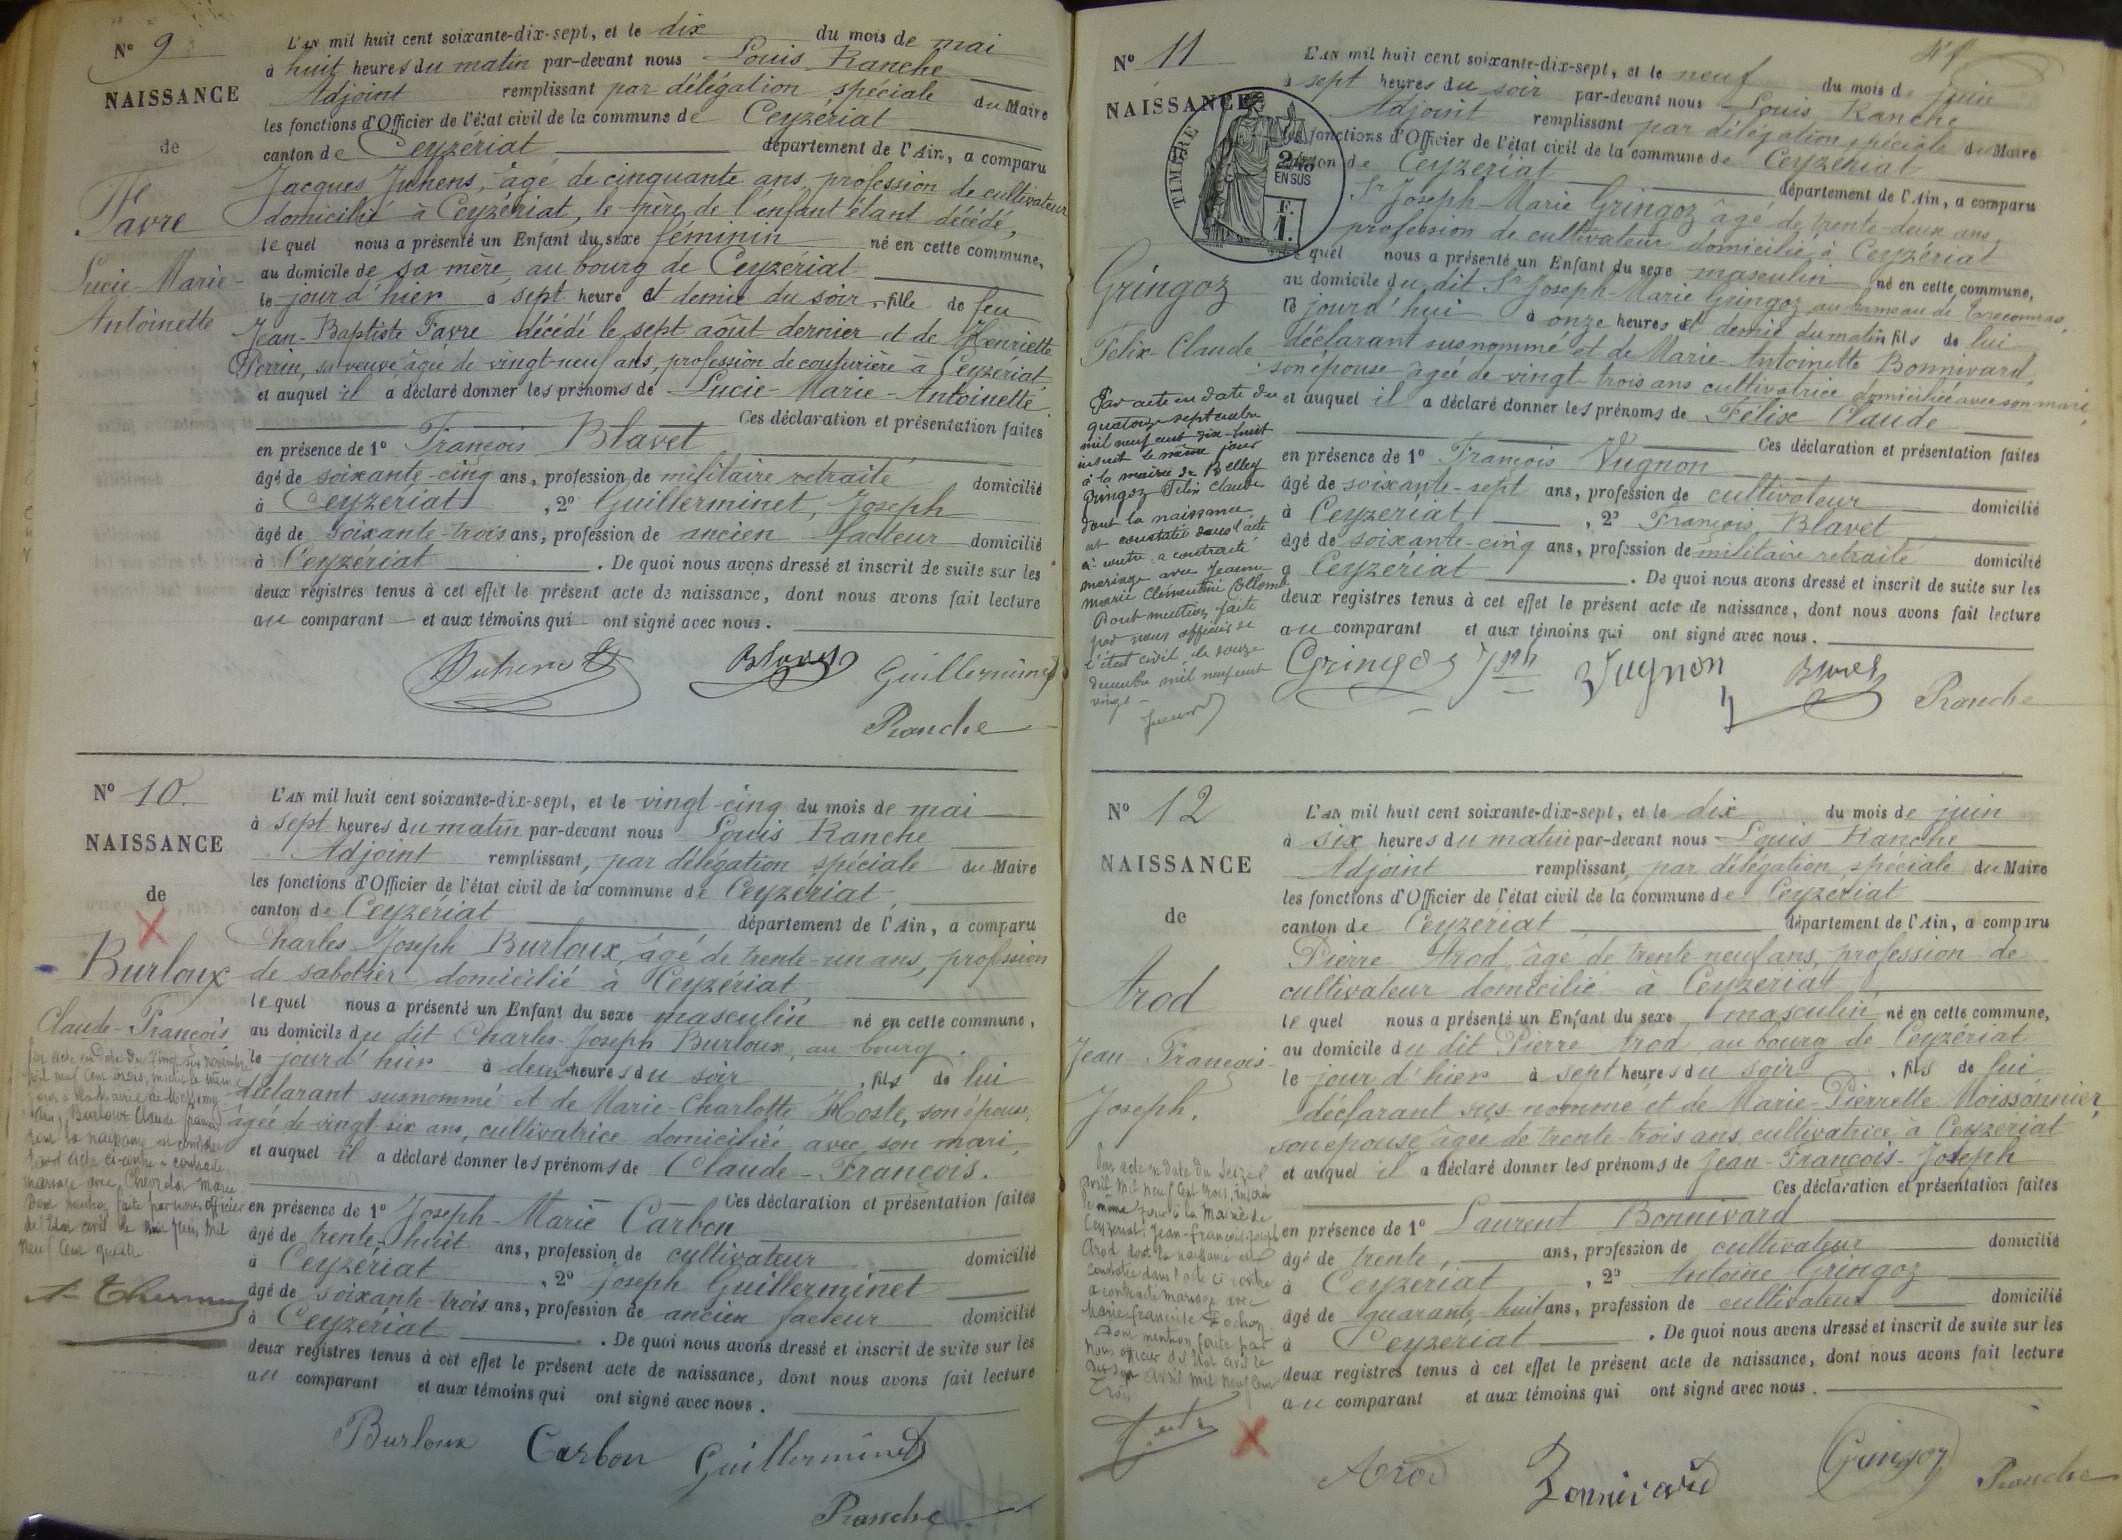 N° 9
NAISSANCE
de
Favre
Lucie-Marie-
Antoinette
L'AN mil huit cent soixante-dix-sept, et le dix du mois de mai
à huit heures du matin par-devant nous Louis Ranche
Adjoint remplissant par délégation spéciale du Maire
les fonctions d'Officier de l'état civil de la commune de Ceyzériat
canton de Ceyzériat département de l'Ain, a comparu
Jacques Juhens, âgé de cinquante ans, profession de cultivateur
domicilié à Ceyzériat, le père de l'enfant étant décédé,
lequel nous a présenté un Enfant du sexe féminin né en cette commune,
au domicile de sa mère, au bourg de Ceyzériat
le jour d'hier à sept heure et demie du soir, fille de feu
Jean-Baptiste Favre décédé le sept août dernier et de Henriette
Perrin, sa veuve âgée de vingt-neuf ans, profession de couturière à Ceyzériat.
et auquel il a déclaré donner les prénoms de Lucie-Marie-Antoinette.
Ces déclaration et présentation faites
en présence de 1° François Blavet
âgé de soixante-cinq ans, profession de militaire retraité domicilié
à Ceyzériat, 2° Guillerminet, Joseph
âgé de soixante-trois ans, profession de ancien facteur domicilié
à Ceyzériat. De quoi nous avons dressé et inscrit de suite sur les
deux registres tenus à cet effet le présent acte de naissance, dont nous avons fait lecture
au comparant et aux témoins qui ont signé avec nous.
Blavet Guilleriminet
Ranche
N° 10.
NAISSANCE
de
Burloux
Claude-François
L'AN mil huit cent soixante-dix-sept, et le vingt-cinq du mois de mai
à sept heures du matin par-devant nous Louis Ranche
Adjoint remplissant, par délégation spéciale du Maire
les fonctions d'Officier de l'état civil de la commune de Ceyzériat
canton de Ceyzériat département de l'Ain, a comparu
Charles Joseph Burloux, âgé de trente-un ans, profession
de sabotier, domicilié à Ceyzériat
lequel nous a présenté un Enfant du sexe masculin né en cette commune,
au domicile du dit Charles-Joseph Burloux, au bourg.
le jour d'hier à deux heures du soir, fils de lui
déclarant susnommé et de Marie-Charlotte Hoste, son épouse,
âgée de vingt-six ans, cultivatrice domiciliée avec son mari,
et auquel il a déclaré donner les prénoms de Claude-François.
Ces déclaration et présentation faites
en présence de 1° Joseph-Marie Carbon
âgé de trente-huit ans, profession de cultivateur domicilié
à Ceyzériat, 2° Joseph Guillerminet
âgé de soixante-trois ans, profession de ancien facteur domicilié
à Ceyzériat. De quoi nous avons dressé et inscrit de suite sur les
deux registres tenus à cet effet le présent acte de naissance, dont nous avons fait lecture
au comparant et aux témoins qui ont signé avec nous.
Burloux Carbon Guillerminet
Ranche
N° 11
NAISSANCE
TIMBRE
2/10
EN SUS
F.
1.
Gringoz
Félix-Claude
Par acte en date du
quatorze septembre
mil neuf cent dix-huit
inscrit le même jour
à la mairie de Belley
Gringoz Félix Claude
dont la naissance
est constatée dans l'acte
ci-contre a contracté
mariage avec Jeanne
Marie Clémentine
Dont mention faite
par nous officier de
l'état civil le douze
décembre mil neuf cent
vingt
L'AN mil huit cent soixante-dix-sept, et le neuf du mois de juin
à sept heures du soir par-devant nous Louis Ranche
Adjoint remplissant par délégation spéciale du Maire
les fonctions d'Officier de l'état civil de la commune de Ceyzériat
canton de Ceyzériat département de l'Ain, a comparu
Sr Joseph-Marie Gringoz âgé de trente-deux ans,
profession de cultivateur domicilié à Ceyzériat
lequel nous a présenté un Enfant du sexe masculin né en cette commune,
au domicile du dit Sr Joseph-Marie Gringoz au hameau de
le jour d'hui à onze heures et demie du matin fils de lui
déclarant susnommé et de Marie-Antoinette Bonnivard,
son épouse âgée de vingt-trois ans cultivatrice domiciliée avec son mari,
et auquel il a déclaré donner les prénoms de Félix Claude
Ces déclaration et présentation faites
en présence de 1° François Vugnon
âgé de soixante-sept ans, profession de cultivateur domicilié
à Ceyzériat, 2° François Blavet
âgé de soixante-cinq ans, profession de militaire retraité domicilié
à Ceyzériat. De quoi nous avons dressé et inscrit de suite sur les
deux registres tenus à cet effet le présent acte de naissance, dont nous avons fait lecture
au comparant et aux témoins qui ont signé avec nous.
Gringoz Jph Vugnon Blavet
Ranche
N° 12
NAISSANCE
de
Arod
Jean-François-
Joseph.
L'AN mil huit cent soixante-dix-sept, et le dix du mois de juin
à six heures du matin par-devant nous Louis Ranche
Adjoint remplissant, par délégation spéciale du Maire
les fonctions d'Officier de l'état civil de la commune de Ceyzériat
canton de Ceyzériat département de l'Ain, a comparu
Pierre Arod, âgé de trente neuf ans, profession de
cultivateur domicilié à Ceyzériat
lequel nous a présenté un Enfant du sexe masculin né en cette commune,
au domicile du dit Pierre Arod, au bourg de Ceyzériat
le jour d'hier à sept heures du soir, fils de lui
déclarant sus nommé et de Marie-Pierrette Moissonnier,
son épouse âgée de trente-trois ans, cultivatrice, à Ceyzériat
et auquel il a déclaré donner les prénoms de Jean-François-Joseph
Ces déclaration et présentation faites
en présence de 1° Laurent Bonnivard
âgé de trente, ans, profession de cultivateur domicilié
à Ceyzériat, 2° Antoine Gringoz
âgé de quarante-huit ans, profession de cultivateur domicilié
à Ceyzériat. De quoi nous avons dressé et inscrit de suite sur les
deux registres tenus à cet effet le présent acte de naissance, dont nous avons fait lecture
au comparant et aux témoins qui ont signé avec nous.
Arod Bonnivard Gringoz Ranche